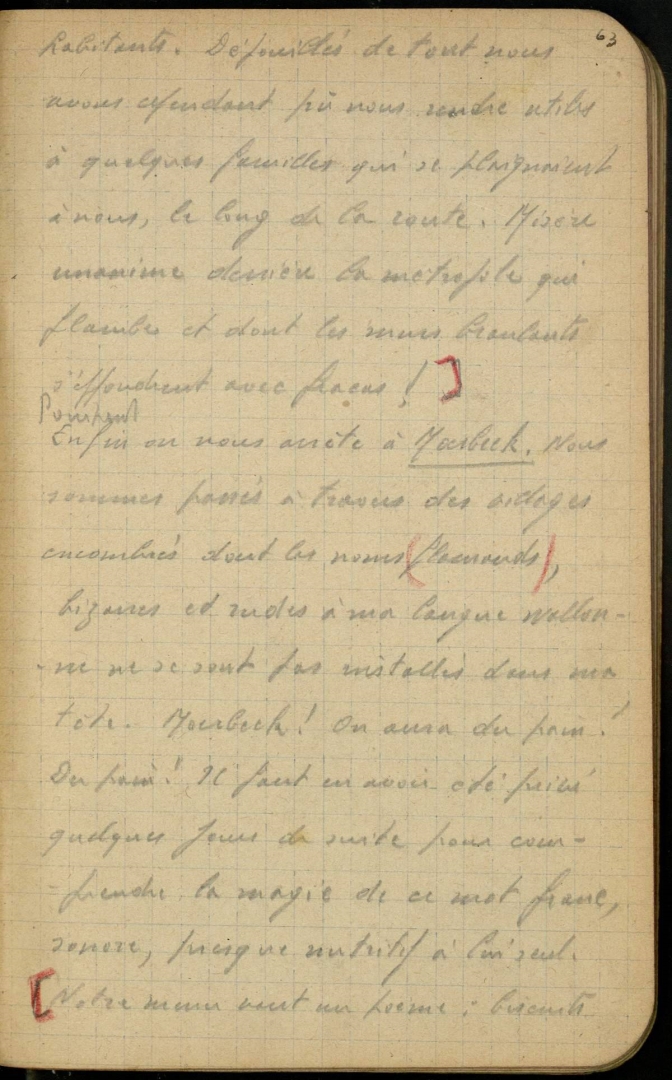 63
habitants. Dépouillés de tout nous
avons cependant pû nous rendre utiles
à quelques familles qui se plaignaient
à nous, le long de la route. Misère
unanime derrière la métropole qui
flambe et dont les murs branlants
s'effondrent avec fracas ! ]
Pourtant
Enfin on nous arrête à Moerbeek. Nous
sommes passés à travers des villages
encombrés dont les noms (flamands),
bizarres et rudes à ma langue wallon-
-ne ne se sont pas installés dans ma
tête. Moerbeek ! On aura du pain !
Du pain ! Il faut en avoir été privé
quelques jours de suite pour com-
-prendre la magie de ce mot franc,
sonore, presque nutritif à lui seul.
[ Notre menu vaut un poème : biscuits